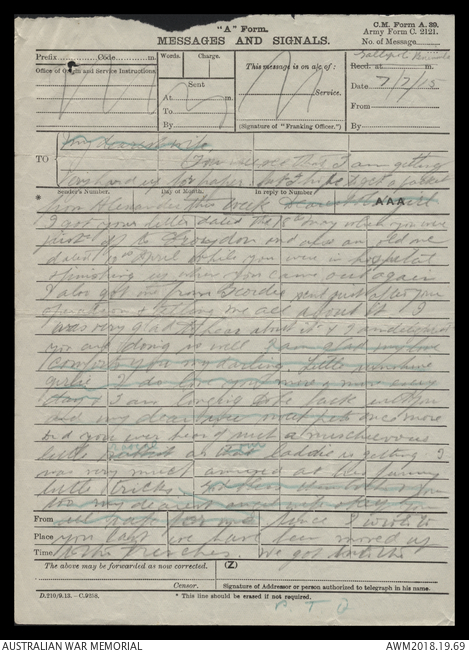 "A" Form.
MESSAGES AND SIGNALS.
C.M. Form A. 39.
Army Form C. 2121.
No. of Message
Prefix Code m.
Words. Charge.
This message is on a/c of :
Recd. at m.
Office of Origin and Service Instructions.
Sent
Service.
Date 7/7/15
At m.
To
From
By
(Signature of "Franking Officer.")
By
TO
My dearest wife
You will see that I am getting
hard up for paper but I hope to get a packet
Sender's Number. Day of Month. In reply to Number
AAA
* from Alexandria this week
I got your letter dated the May when you were
just off to Croydon and also an old one
dated April while you were in hospital
finishing up when you came once again
I also got one from Geordie sent just after your
operation & telling me all about it I
was very glad to hear about it &
you are doing so well I am glad my love
comfort you my darling little sunshine
girlie I do love you more & more every
day & I am longing to be back with you
and my dear wee pet once more
Did you ever hear of such a mischievous
little rabbit as laddie is getting I
was very much amused at his funny
little tricks God bless him both of you
my dearest and keep you
From all safe for me Since I wrote to
Place you last we have been moved up
Time to the trenches. We got into the
The above may be forwarded as now corrected. (Z)
Censor. Signature of Addressor or person authorised to telegraph in his name.
D.210/9.13.-C.9258. * This line should be erased if not required.
P. T. O
AUSTRALIAN WAR MEMORIAL AWM2018.19.69